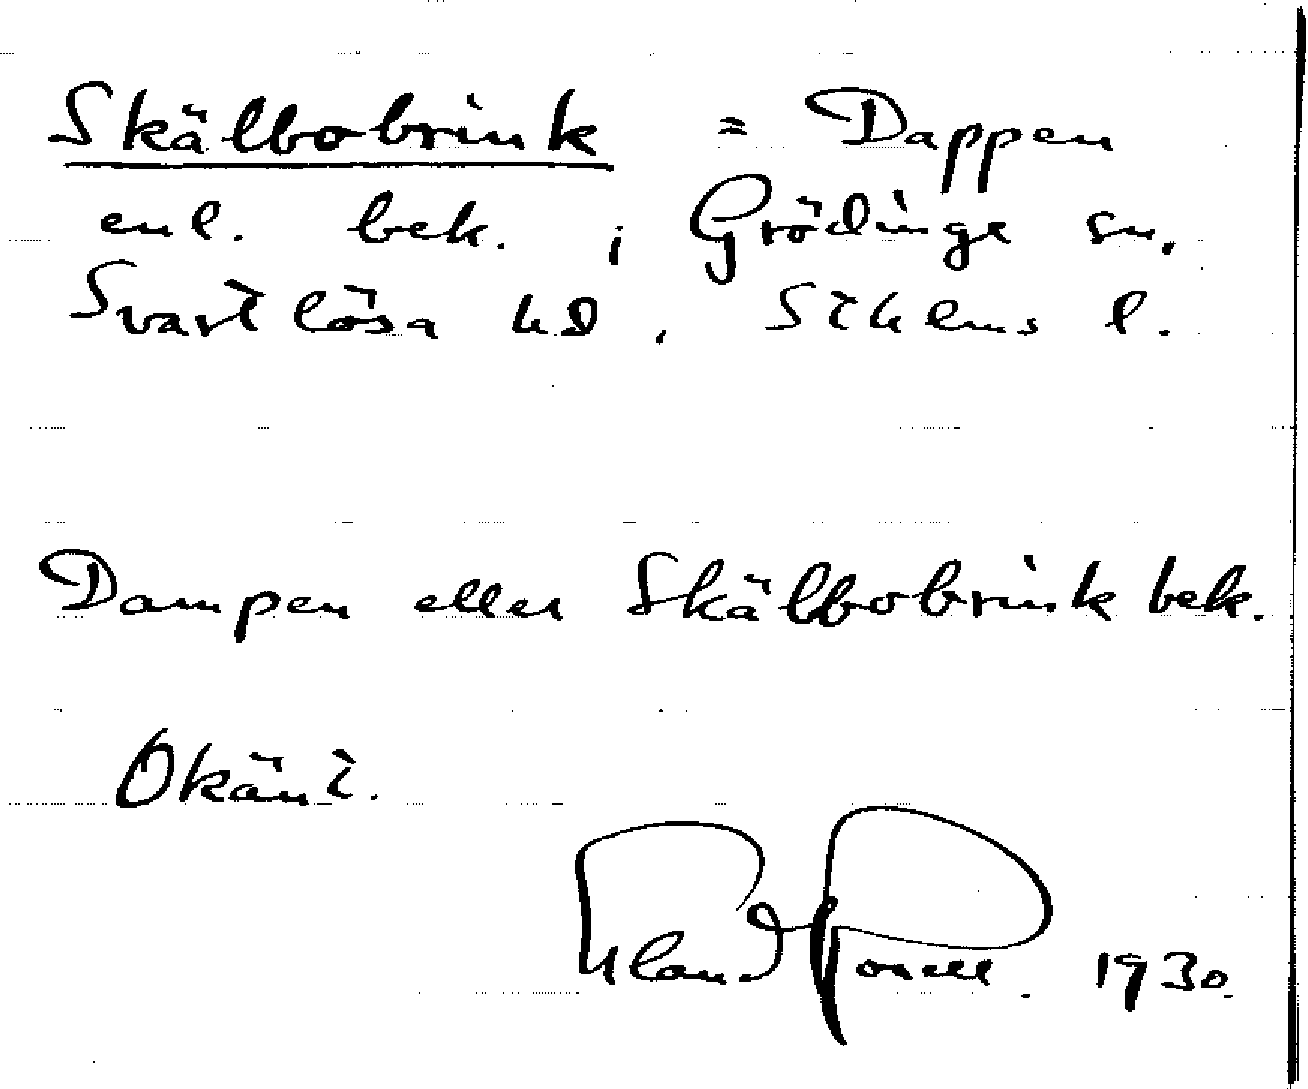 Skälbobrink = Dappen
enl. bek. i Grödinge sn.
Svartlösa hd, Sthlms l.
Dampen eller Skälbobrink bek.
Okänt.
1930.